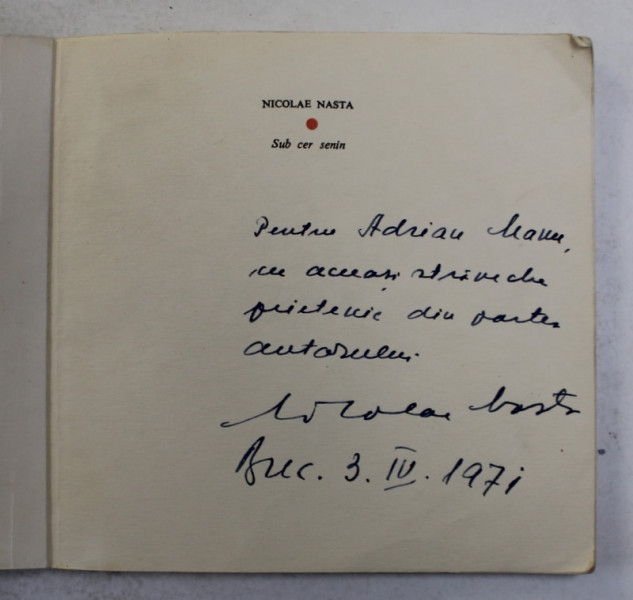 NICOLAE NASTA
Sub cer senin
Pentru Adrian Maniu,
cu aceeași străveche
prietenie din partea
autorului
Nicolae Nasta
Buc. 3. IV. 1971